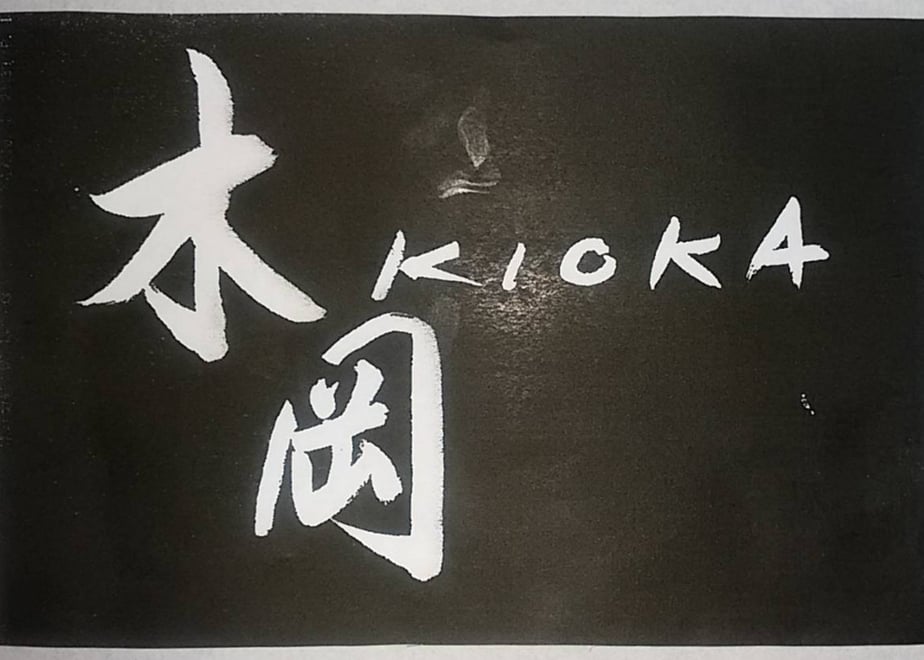 木岡
KIOKA